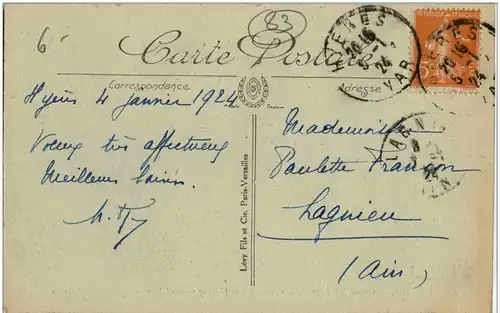 6
83
Carte Postale
Correspondance
Adresse
HYERES
20 45
5 - 1
24
VAR
Hyères 4 janvier 1924
Voeux très affectueux
Meilleurs
Mademoiselle
Paulette Françon
Lagnieu
(Ain)
Lévy Fils et Cie, Paris-Versailles